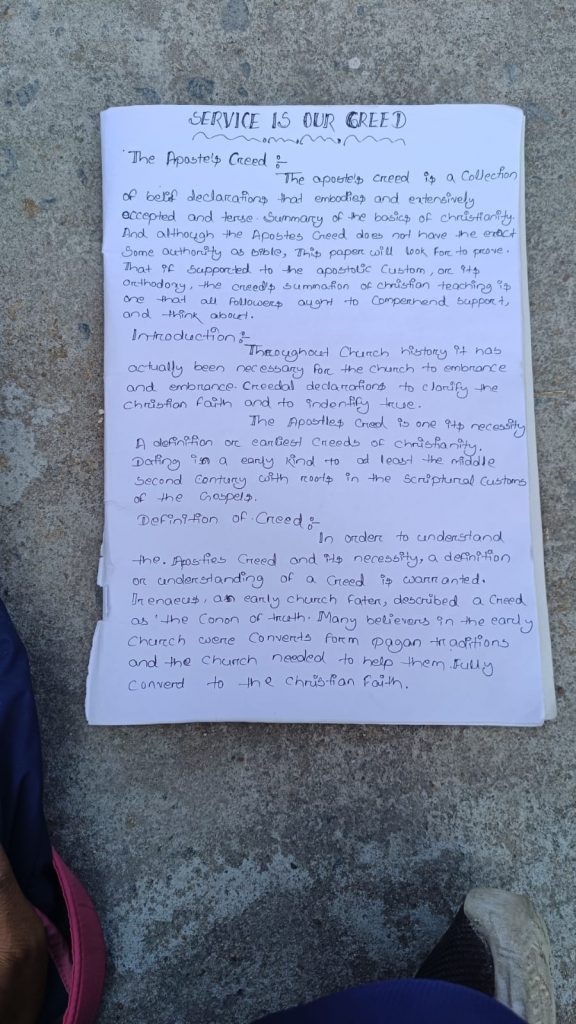 SERVICE IS OUR CREED
The Apostels Creed :-
The apostels creed is a Collection
of belif declarations that embodies and extensively
accepted and terse. Summary of the basics of christianity.
And although the Apostes Creed does not have the exact
Some authority as bible, This paper will look for to prove.
That if supported to the apostolic Custom, or its
orthodony, the creed's summation of christian teaching is
one that all followers aught to Compenhend support,
and think about.
Introduction :-
Throughout Church history it has
actually been necessary for the church to embrance
and embrance. Creedal declarations to clarify the
christian faith and to indentify true.
The Apostles Creed is one its necessity
A definition or earliest Creeds of christianity.
Dating is a early kind to at least the middle
second Contury with roots in the Scriptural Customs
of the Gospels.
Definition of Creed :-
In order to understand
the. Aposties Creed and its necessity, a definition
or understanding of a Creed is warranted.
Irenaeus, an early church fater, described a Creed
as 'the Conon of truth. Many believers in the early
Church were Converts form pagan traditions
and the Church needed to help them. Fully
Converd to the Christian Faith.